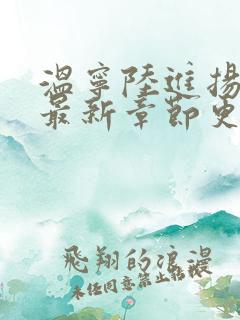 溫寧陸進揚
最新章節更
飛翔的浪漫
未經同意禁止轉載